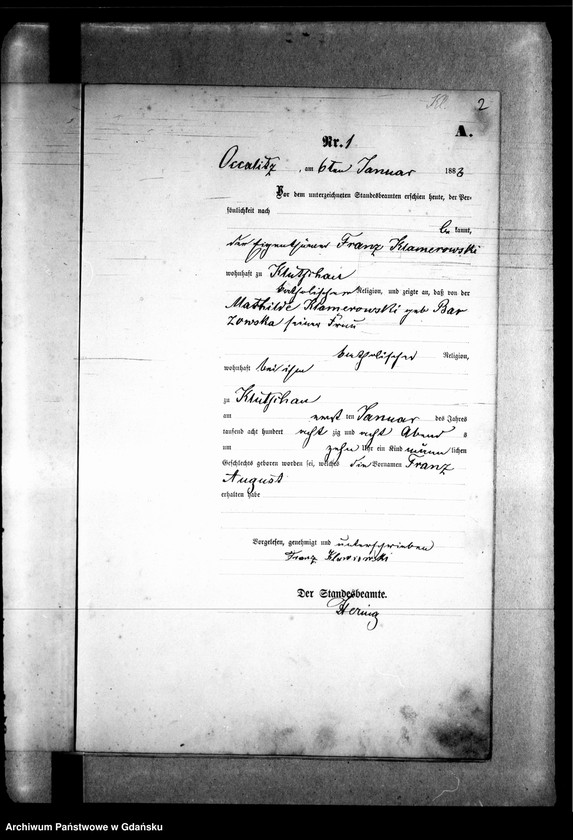 Kl. 2
A.
Nr. 1
Occalitz, am 6ten Januar 1888
Vor dem unterzeichneten Standesbeamten erschien heute, der Per-
sönlichkeit nach
be kannt,
der Eigenthümer Franz Klamerowski
wohnhaft zu Klutschau
katholischer Religion, und zeigte an, daß von der
Mathilde Klamerowski geb Bar
zowska seiner Frau
katholischer Religion,
wohnhaft bei ihm
zu Klutschau
am ersten Januar des Jahres
tausend acht hundert acht zig und acht Abend s
um zehn Uhr ein Kind männ lichen
Geschlechts geboren worden sei, welches die Vornamen Franz
August
erhalten habe
Vorgelesen, genehmigt und unterschrieben
Franz
Der Standesbeamte.
Hering
Archiwum Państwowe w Gdańsku